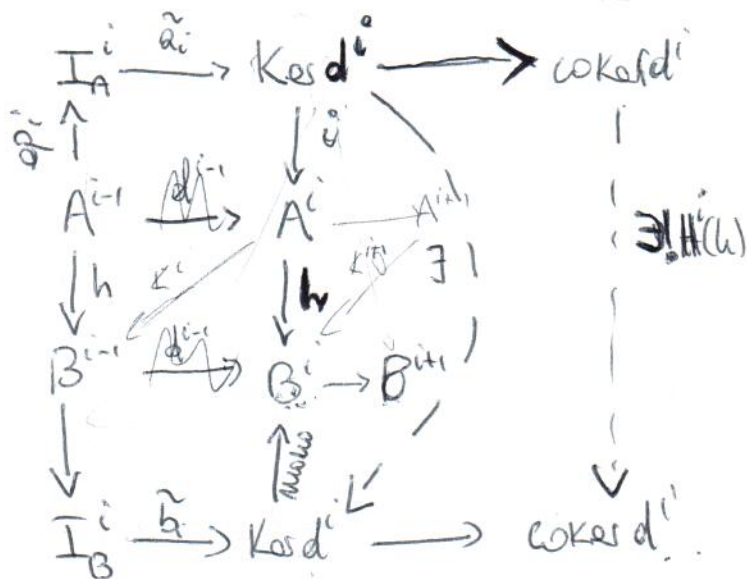 I_A^i ã_i Ker d^i coker d^i
epi i
A^{i-1} d^{i-1} A^i A^{i+1} ∃!H^i(h)
h k^i h k^{i+1} ∃
B^{i-1} d^{i-1} B^i B^{i+1}
mono
I_B^i b̃_i Ker d^i coker d^i